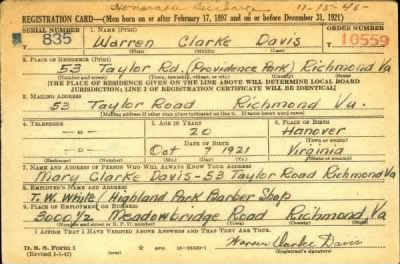 Honorable Discharge 11-15-45-
REGISTRATION CARD—(Men born on or after February 17, 1897 and on or before December 31, 1921)
SERIAL NUMBER 1. NAME (Print) ORDER NUMBER
835 Warren Clarke Davis 10559
(First) (Middle) (Last)
2. PLACE OF RESIDENCE (Print)
53 Taylor Rd. (Providence Park) Richmond Va
(Number and street) (Town, township, village, or city) (County) (State)
[THE PLACE OF RESIDENCE GIVEN ON THE LINE ABOVE WILL DETERMINE LOCAL BOARD
JURISDICTION; LINE 2 OF REGISTRATION CERTIFICATE WILL BE IDENTICAL]
3. MAILING ADDRESS
53 Taylor Road Richmond Va.
[Mailing address if other than place indicated on line 2. If same insert word same]
4. TELEPHONE 5. AGE IN YEARS 6. PLACE OF BIRTH
20 Hanover
DATE OF BIRTH (Town or county)
Oct 7 1921 Virginia
(Exchange) (Number) (Mo.) (Day) (Yr.) (State or country)
7. NAME AND ADDRESS OF PERSON WHO WILL ALWAYS KNOW YOUR ADDRESS
Mary Clarke Davis-53 Taylor Road Richmond Va
8. EMPLOYER'S NAME AND ADDRESS
T. W. White/ Highland Park Barber Shop
9. PLACE OF EMPLOYMENT OR BUSINESS
3000 1/2 Meadowbridge Road Richmond, Va
(Number and street or R. F. D. number) (Town) (County) (State)
I AFFIRM THAT I HAVE VERIFIED ABOVE ANSWERS AND THAT THEY ARE TRUE.
D. S. S. Form 1 Warren Clarke Davis
(Registrant's signature)